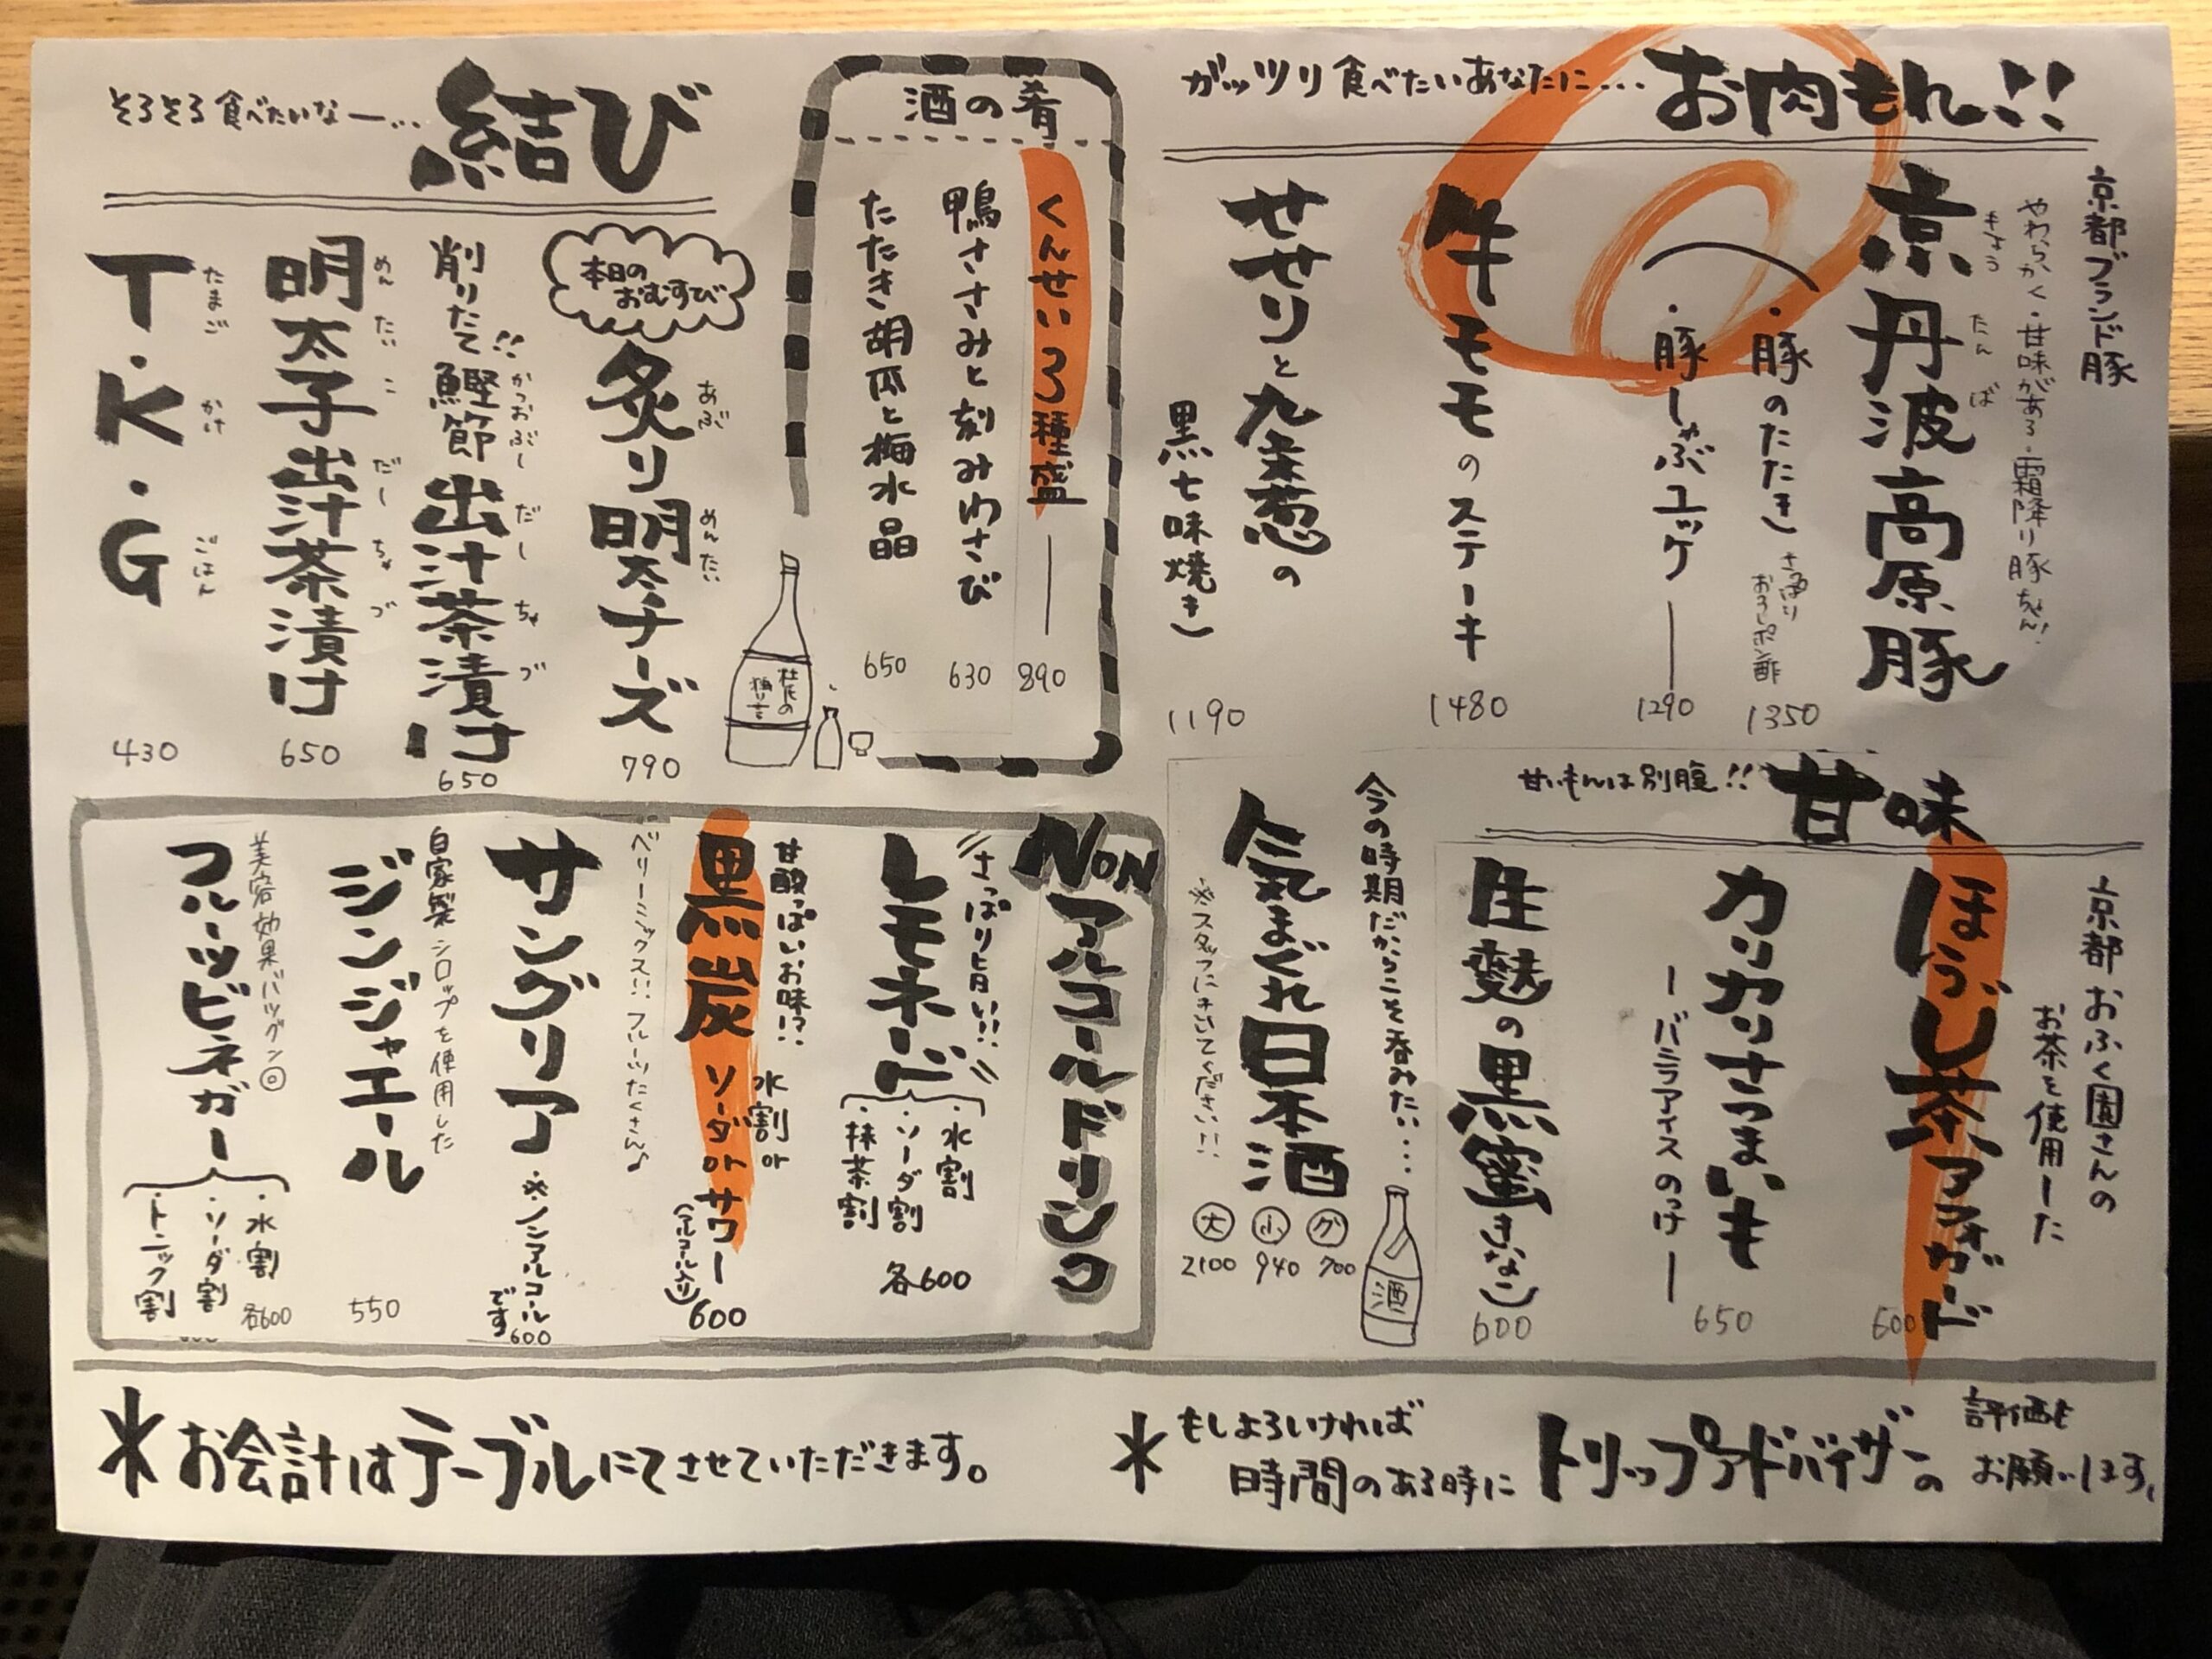 ガッツリ食べたいあなたに…
お肉もれ!!
京都ブランド豚
やわらかく・甘味がある・霜降り豚ちゃん!
京丹波高原豚
きょう たん ば
・豚のたたき
さっぱり
おろしポン酢
1350
・豚しゃぶユッケ
1290
牛モモのステーキ
1480
せせりと九条葱の
黒七味焼き
1190
酒の肴
くんせい3種盛
890
鴨ささみと刻みわさび
630
たたき胡瓜と梅水晶
650
そろそろ食べたいなー…
結び
本日の
おむすび
炙り明太チーズ
あぶ めんたい
790
削りたて!!鰹節出汁茶漬け
かつおぶし だし ちゃ づ
650
明太子出汁茶漬け
めん たい こ だし ちゃ づ
650
T・K・G
たまご かけ ごはん
430
甘いもんは別腹!!
甘味
京都おふく園さんの
お茶を使用した
ほうじ茶アフォガード
600
カリカリさつまいも
ーバニラアイスのっけー
650
生麩の黒蜜きなこ
600
今の時期だからこそ呑みたい…
気まぐれ日本酒
※スタッフにきいてください!!
グ 700
小 940
大 2100
酒
NONアルコールドリンク
さっぱり旨い!!
レモネード
・水割
・ソーダ割
・抹茶割
各600
甘酸っぱいお味!?
黒炭
水割 or
ソーダ or サワー
(アルコール入り)
600
ベリーミックス!! フルーツたくさん♪
サングリア
※ノンアルコール
です
600
自家製シロップを使用した
ジンジャエール
550
美容効果バツグン◎
フルーツビネガー
・水割
・ソーダ割
・トニック割
各600
*お会計はテーブルにてさせていただきます。
*もしよろければ
時間のある時に
トリップアドバイザーの
評価も
お願いします。